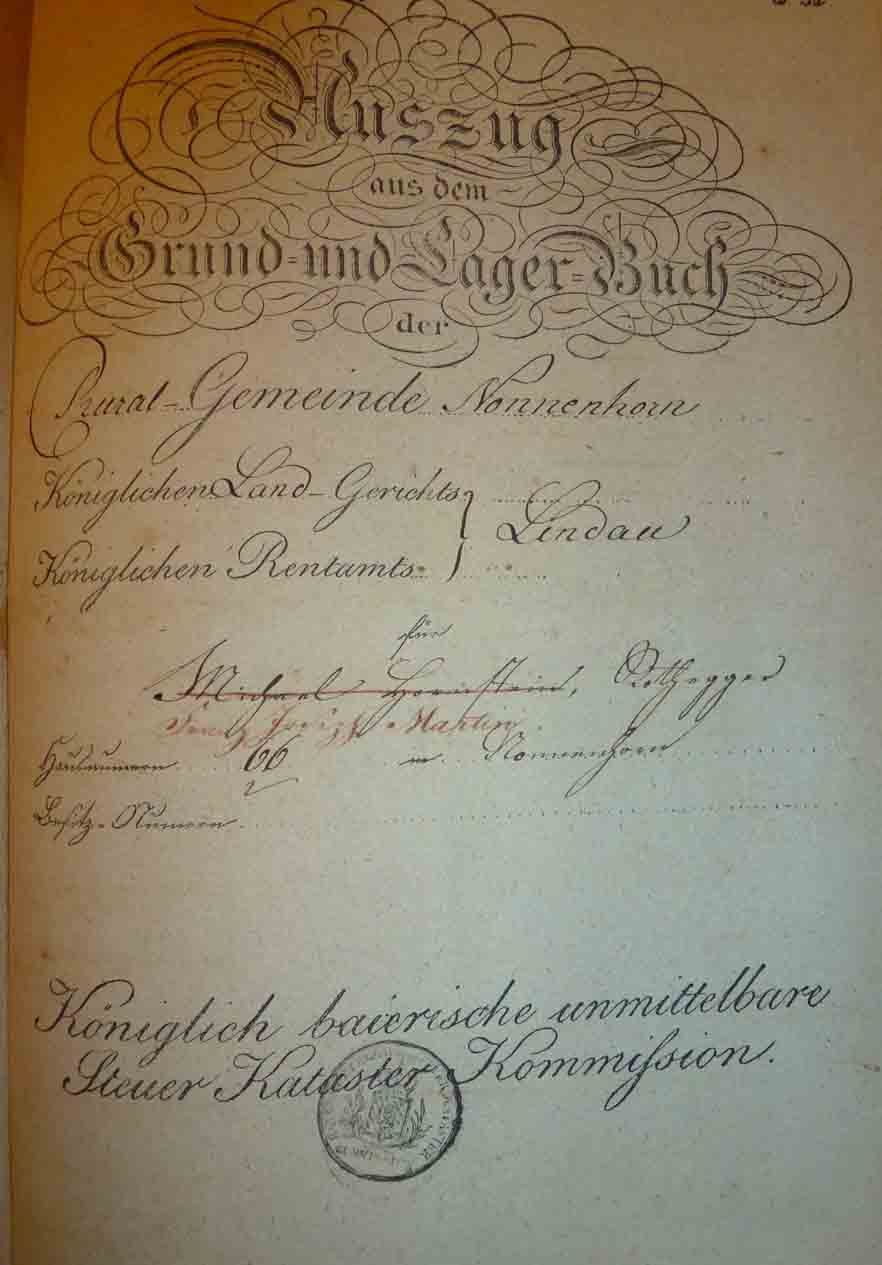 Auszug
aus dem
Grund- und Lager-Buch
der
Rural-Gemeinde Nonnenhorn
Königlichen Land-Gerichts
Lindau
Königlichen Rentamts
für
Michael Hornstein, Rothegger
Martin
Hausnumern 66 in Nonnenhorn
Besitz-Numern
Königlich baierische unmittelbare
Steuer Kataster Kommission.